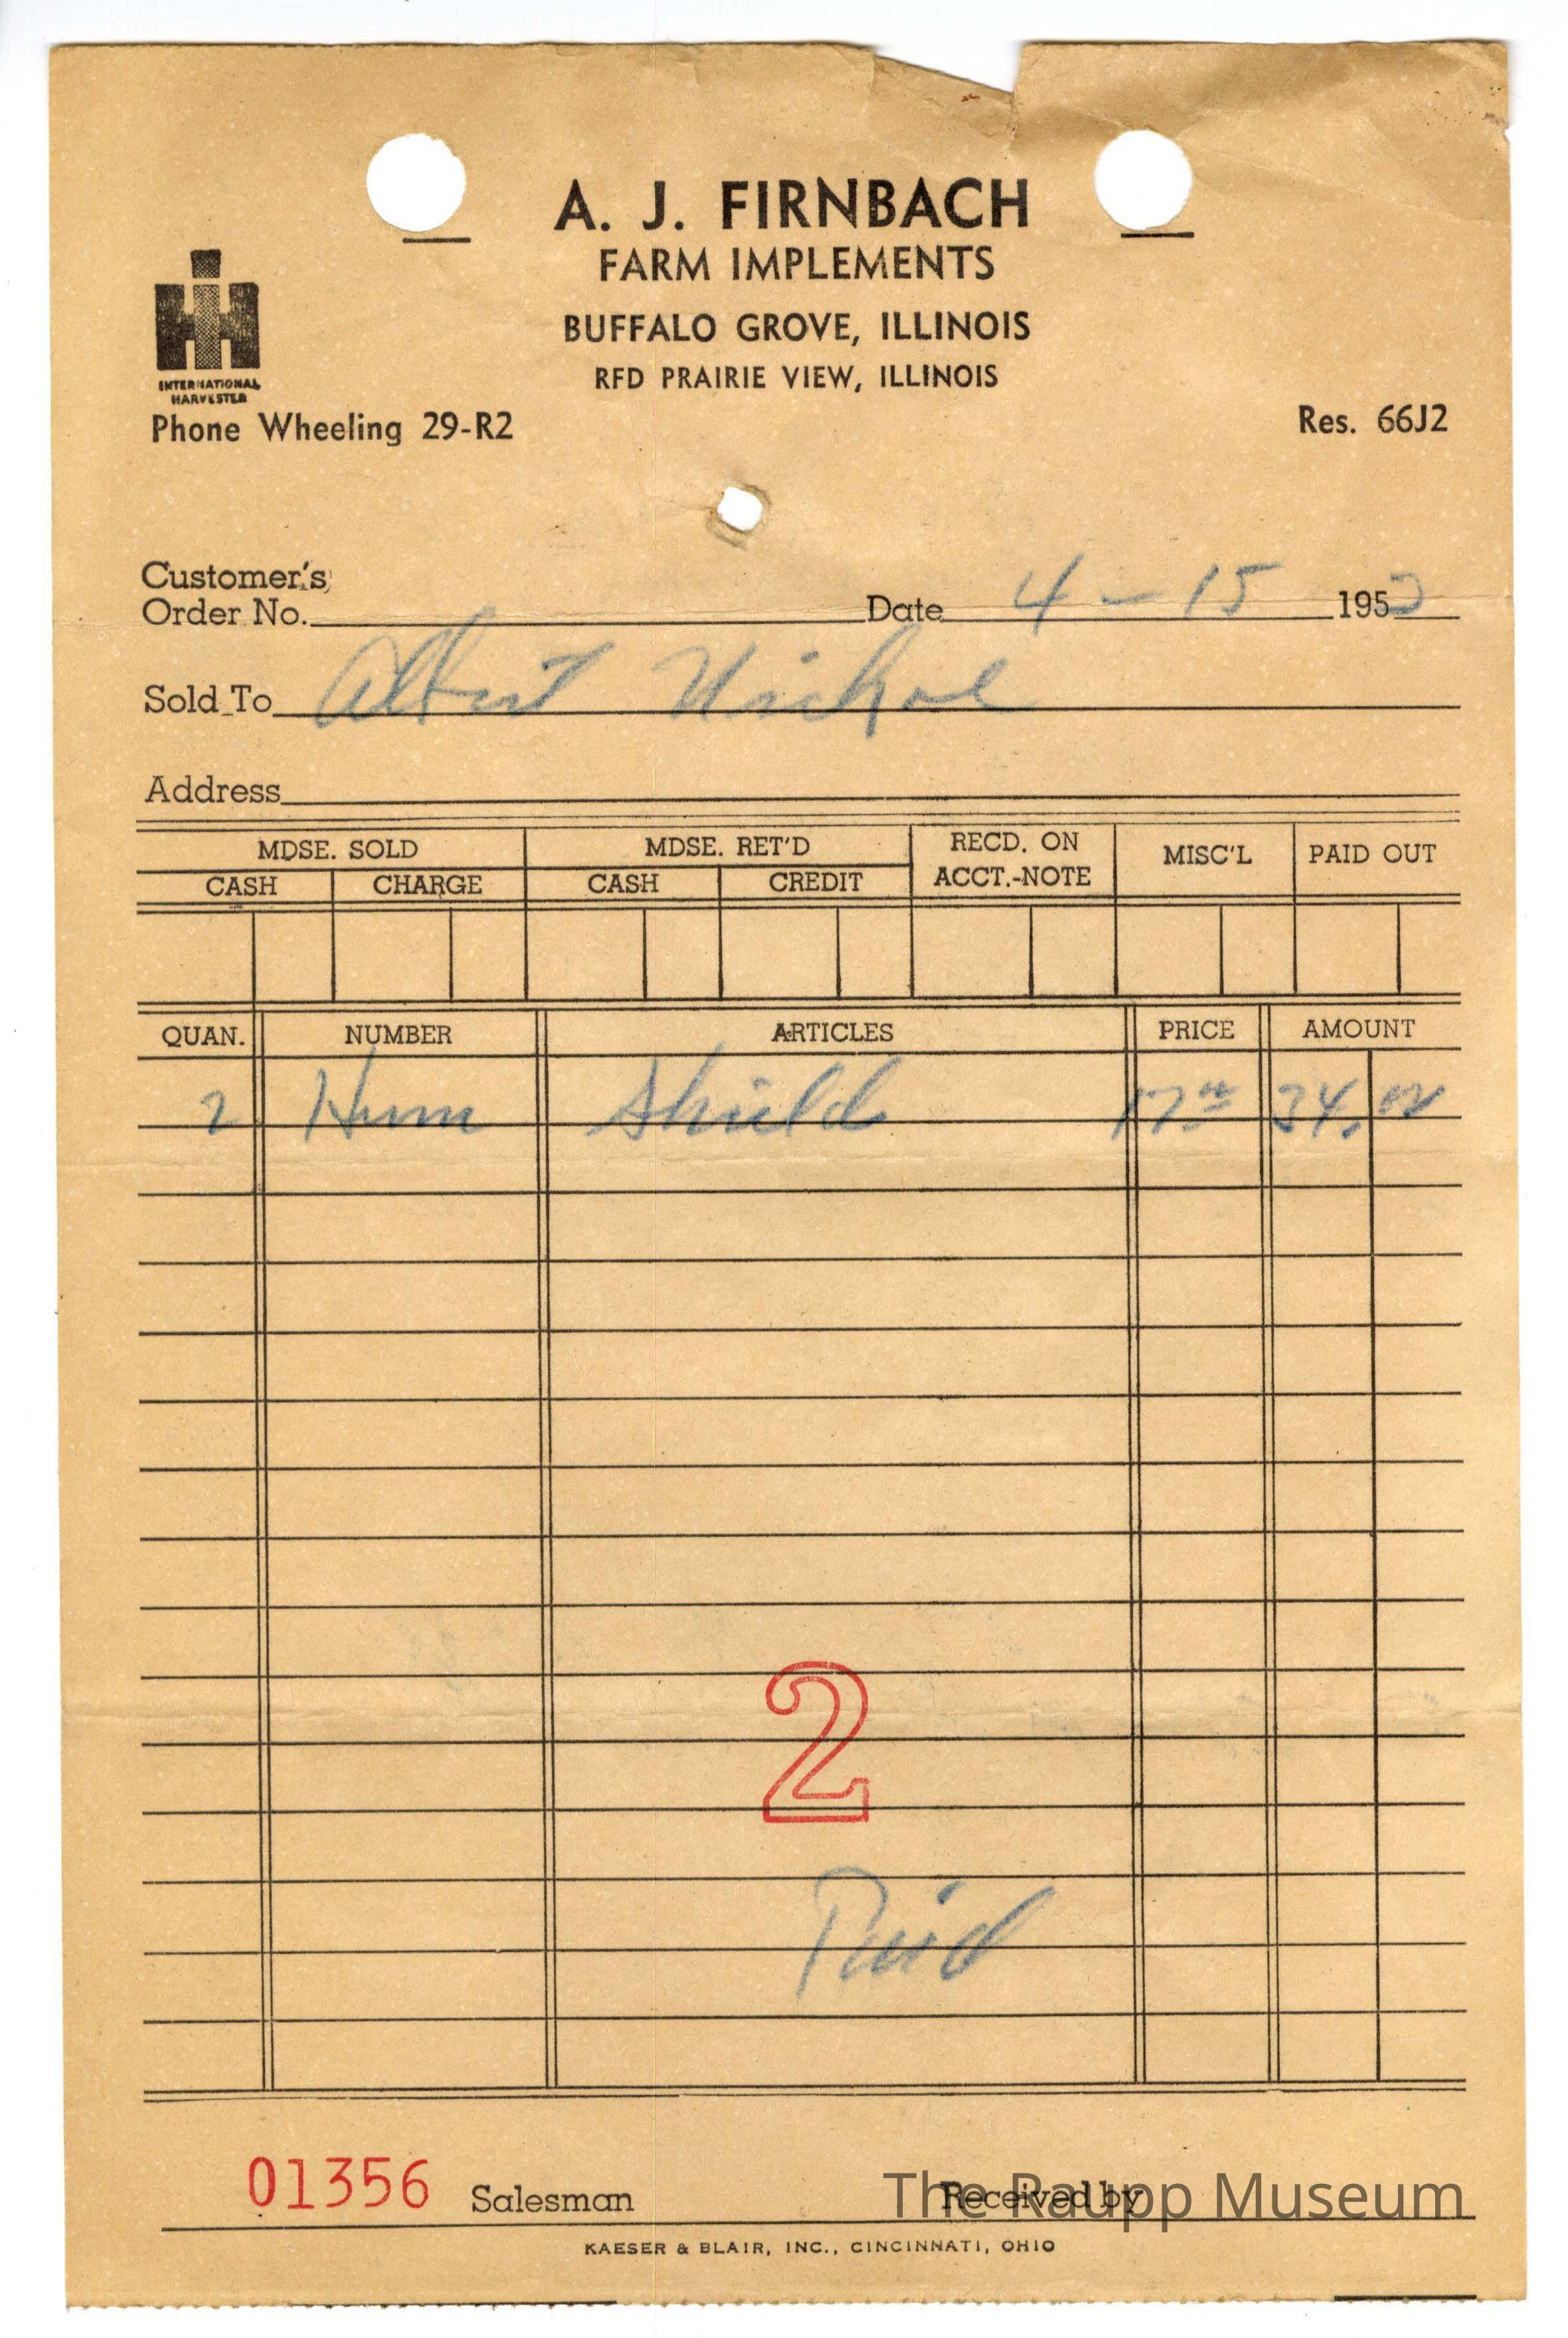 A. J. FIRNBACH
FARM IMPLEMENTS
BUFFALO GROVE, ILLINOIS
RFD PRAIRIE VIEW, ILLINOIS
IH
INTERNATIONAL
HARVESTER
Phone Wheeling 29-R2 Res. 66J2
Customer's
Order No. Date 4-15 195
Sold To Albert Nickol
Address
MDSE. SOLD MDSE. RET'D RECD. ON ACCT.-NOTE MISC'L PAID OUT
CASH CHARGE CASH CREDIT
QUAN. NUMBER ARTICLES PRICE AMOUNT
2 Shield 17.00 34.00
2
Paid
01356 Salesman Received by
The Raupp Museum
KAESER & BLAIR, INC., CINCINNATI, OHIO